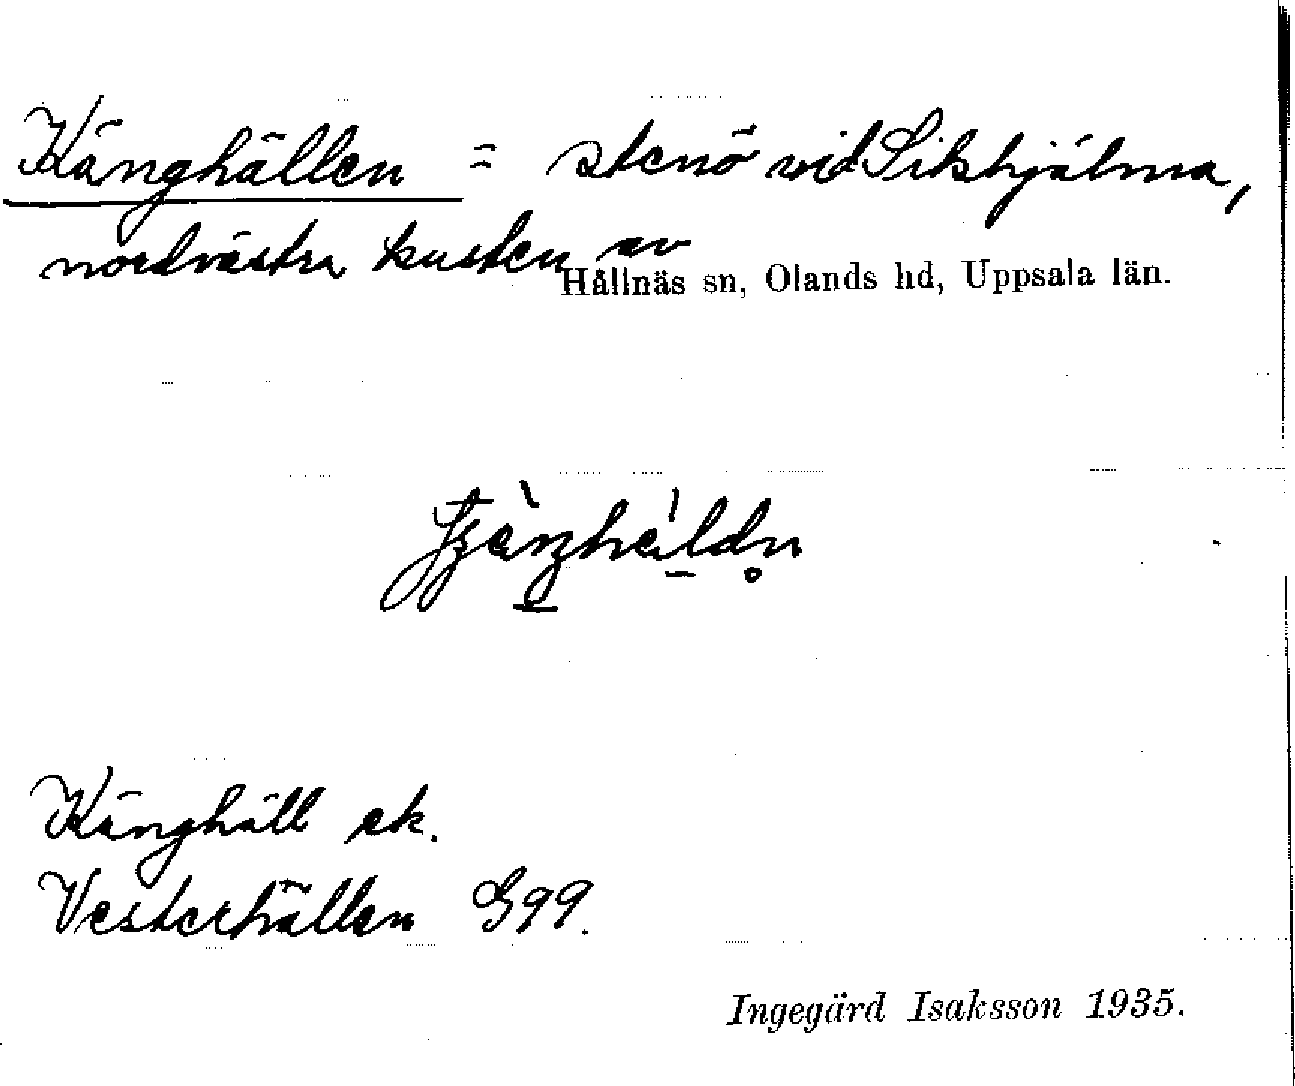 Känghällen = stenö vid Sikhjälma,
nordvästra kusten av
Hållnäs sn, Olands hd, Uppsala län.
Känghäll ek.
Vesterhällen G99.
Ingegärd Isaksson 1935.